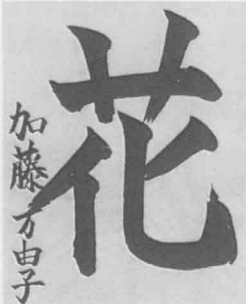 花
加藤万由子